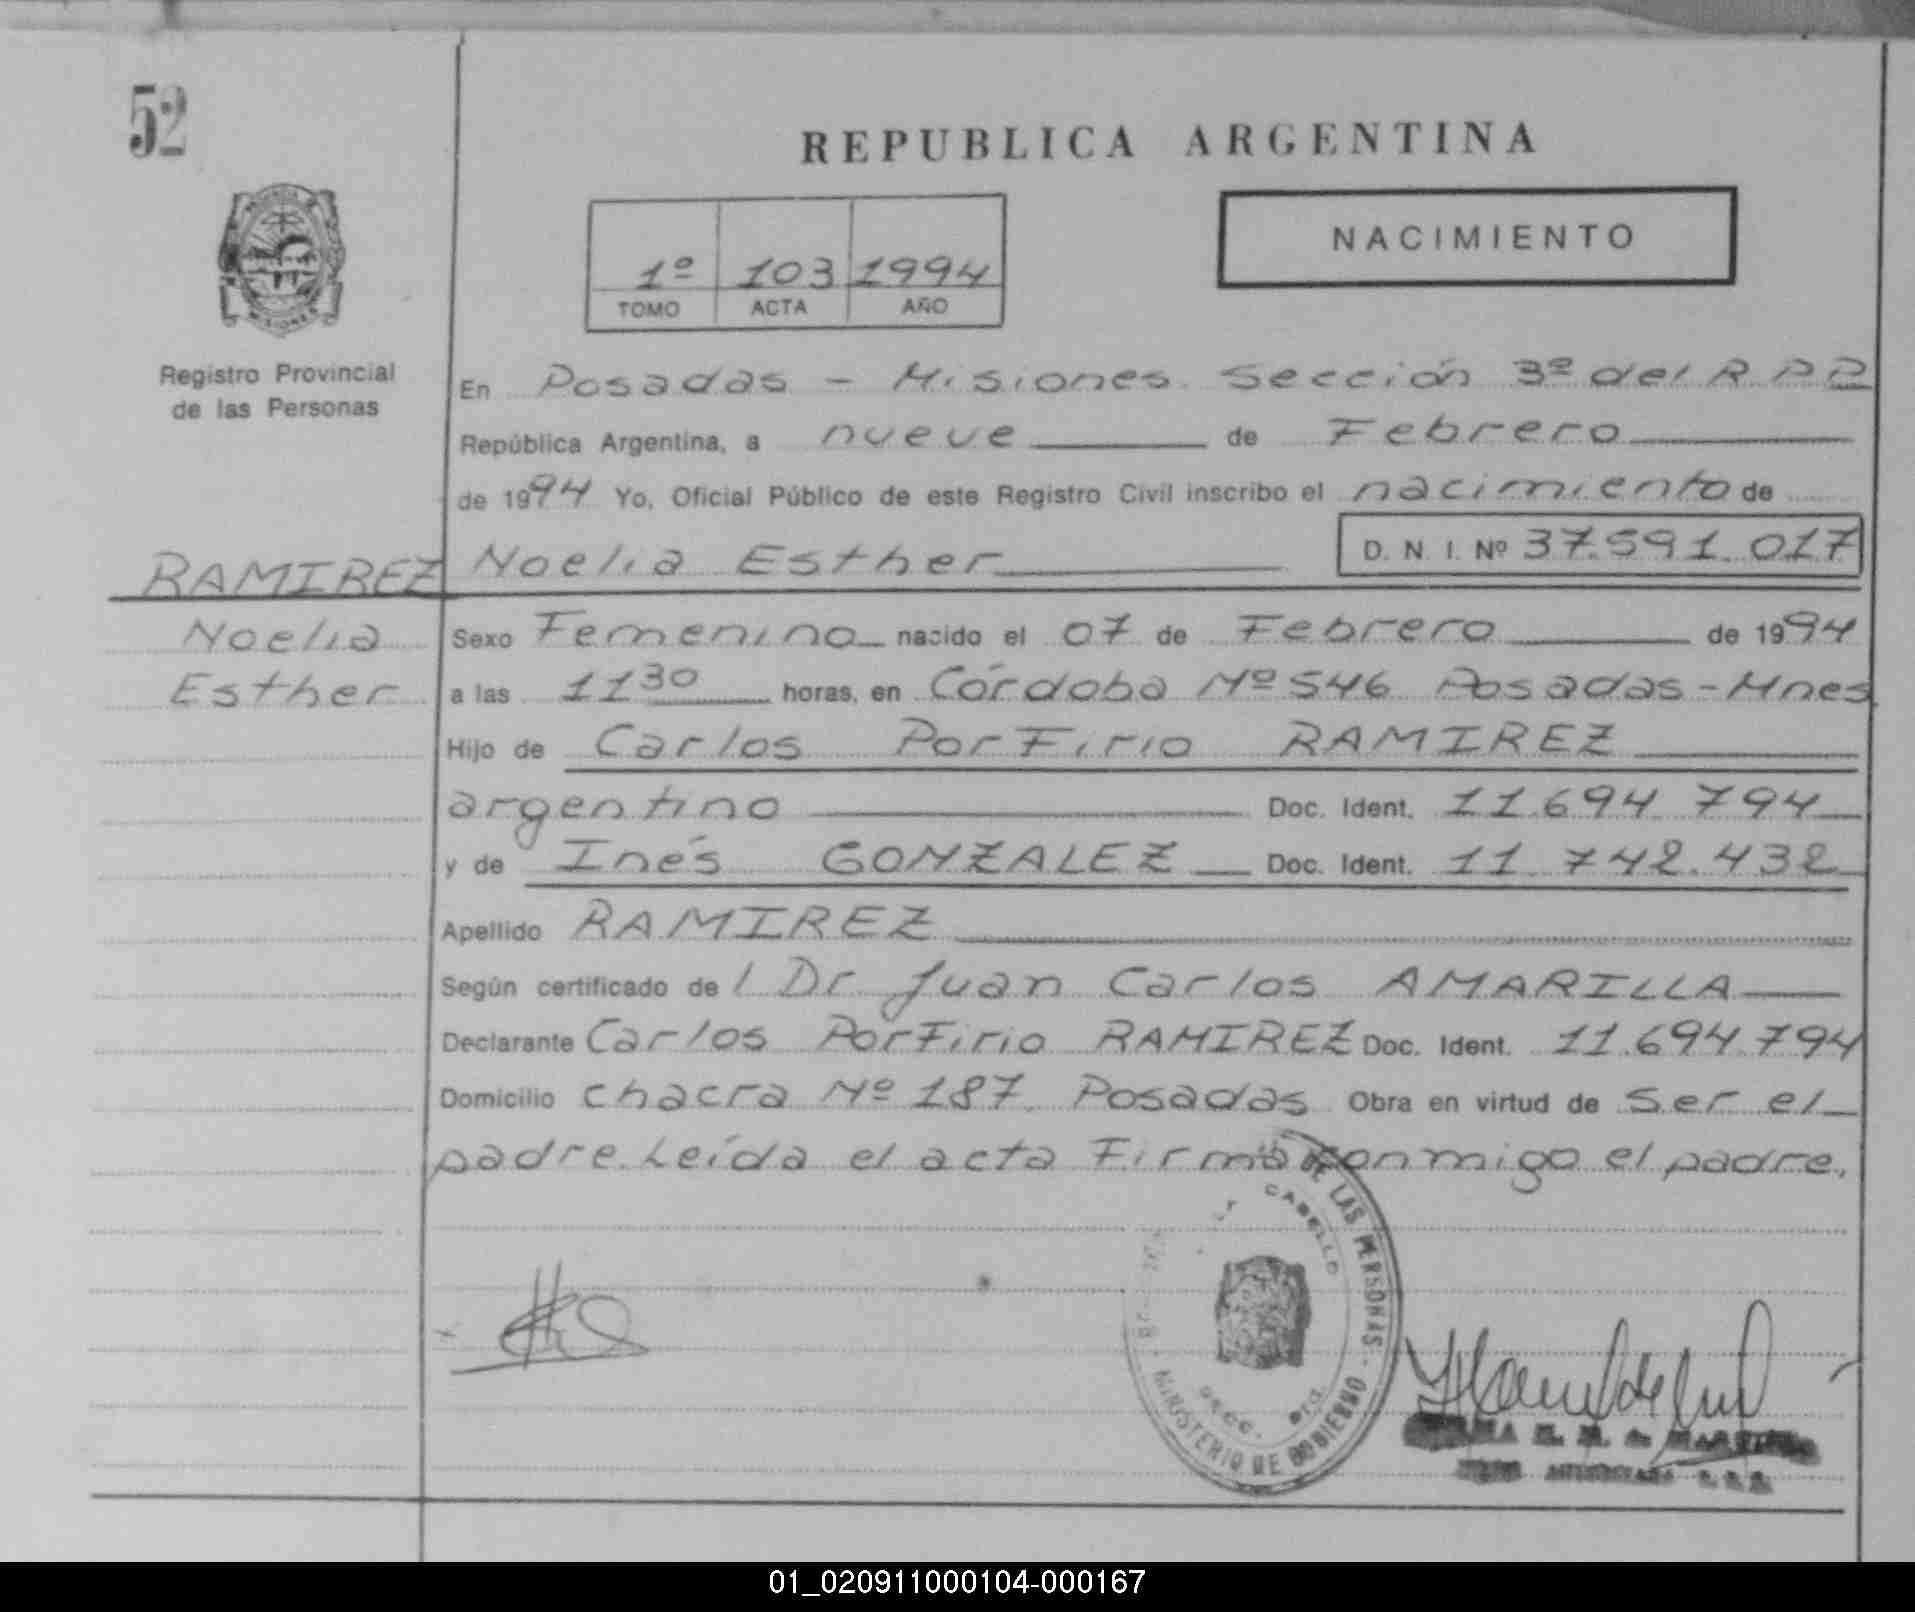 52
REPUBLICA ARGENTINA
NACIMIENTO
1º 103 1994
TOMO ACTA AÑO
PROVINCIA
MISIONES
Registro Provincial
de las Personas
En Posadas - Misiones. Sección 3ª del R.P.P
República Argentina, a nueve de Febrero
de 1994 Yo, Oficial Público de este Registro Civil inscribo el nacimiento de
RAMIREZ Noelia Esther D. N. I. Nº 37.591.017
Noelia
Esther
Sexo Femenino nacido el 07 de Febrero de 1994
a las 11 30 horas, en Córdoba Nº 546 Posadas-Mnes
Hijo de Carlos PorFirio RAMIREZ
argentino Doc. Ident. 11.694 794
y de Inés GONZALEZ Doc. Ident. 11.742.432
Apellido RAMIREZ
Según certificado del Dr Juan Carlos AMARILLA
Declarante Carlos PorFirio RAMIREZ Doc. Ident. 11.694.794
Domicilio chacra Nº 187 Posadas Obra en virtud de ser el
padre. Leída el acta Firma conmigo el padre.
DE LAS PERSONAS - MINISTERIO DE GOBIERNO
CABELLO
01_020911000104-000167